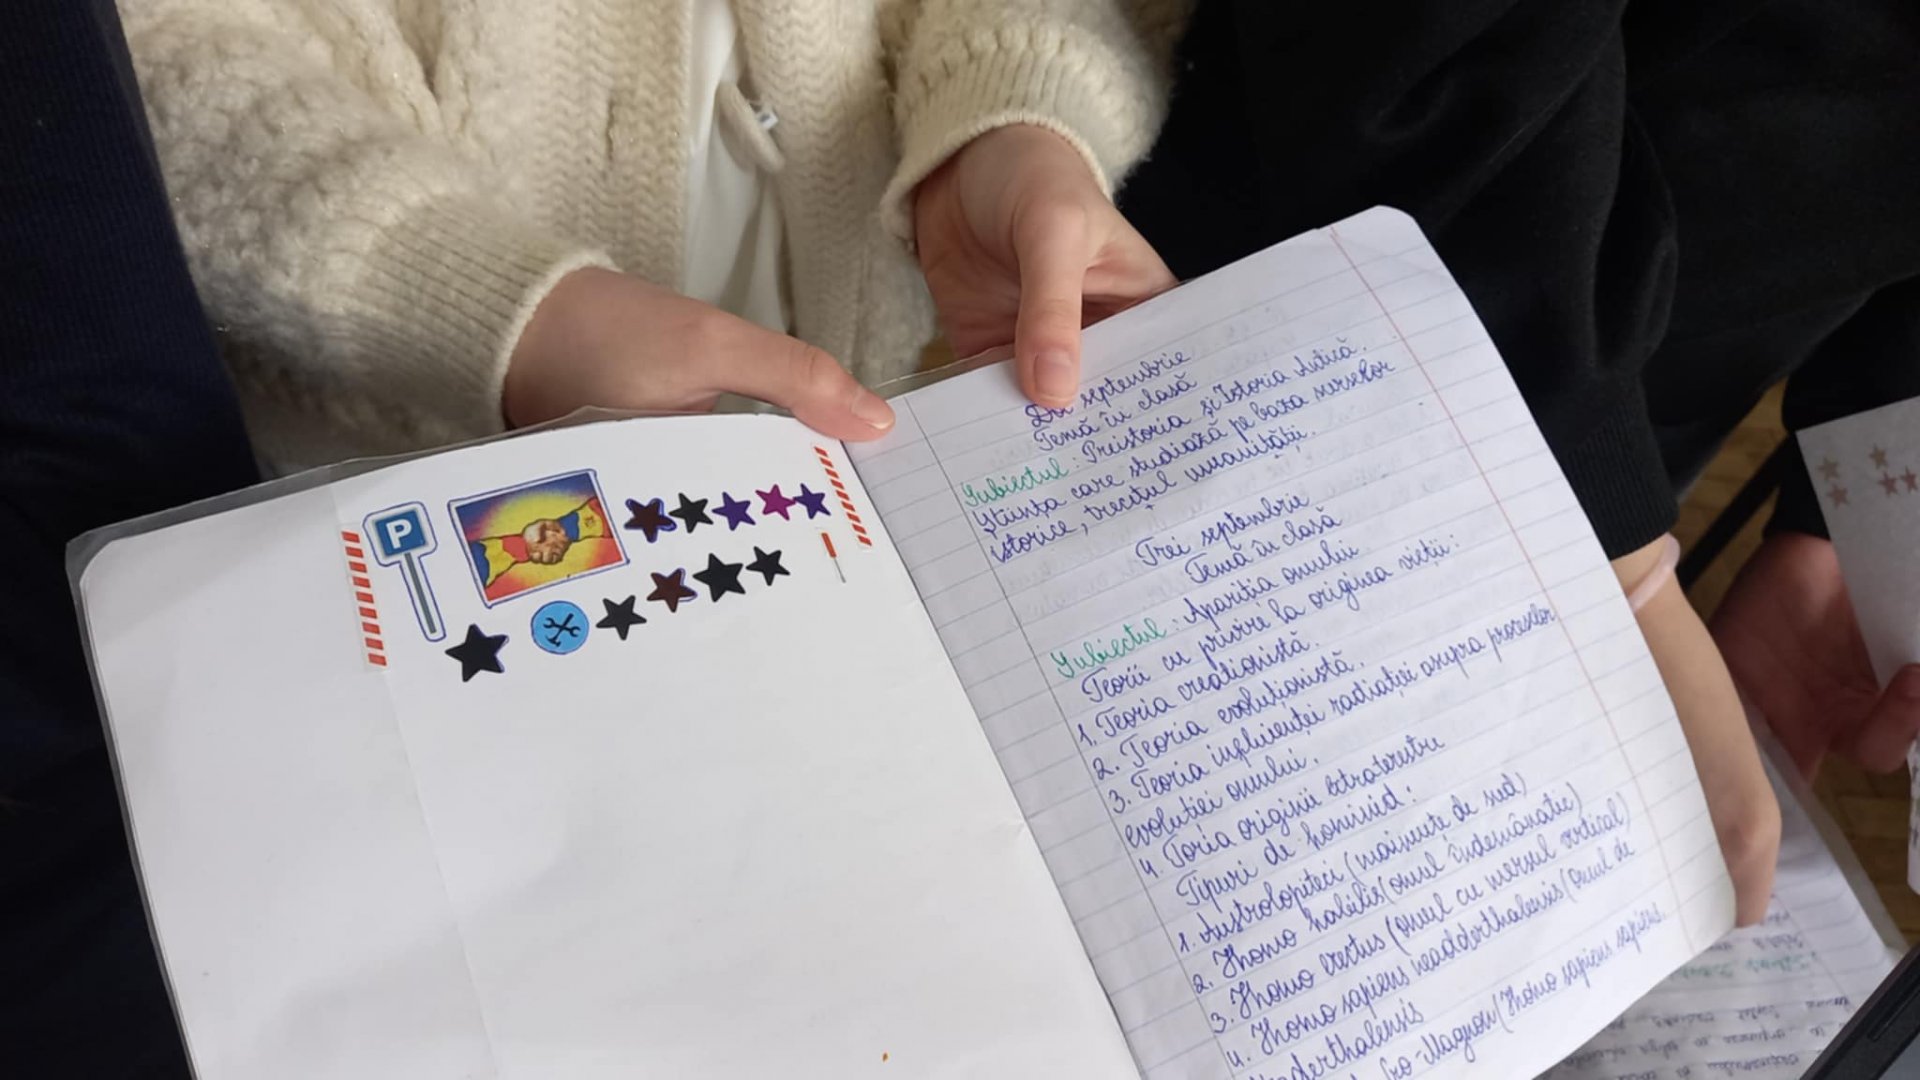 P
Doi septembrie
Temă în clasă
Subiectul: Preistoria și Istoria Antică.
Știința care studiază pe baza surselor
istorice, trecutul umanității.
Trei septembrie
Temă în clasă
Subiectul: Apariția omului.
Teorii cu privire la originea vieții:
1. Teoria creaționistă.
2. Teoria evoluționistă.
3. Teoria influienței radiației asupra proceselor
evoluției omului.
4. Toria originii extraterestre
Tipuri de hominid:
1. Austrolopiteci (maimuțe de sud)
2. Homo habilis (omul îndemânatic)
3. Homo erectus (omul cu mersul vertical)
4. Homo sapiens neadderthalensis (omul de
Neaderthalensis
Cro-Magnon (Homo sapiens sapiens.